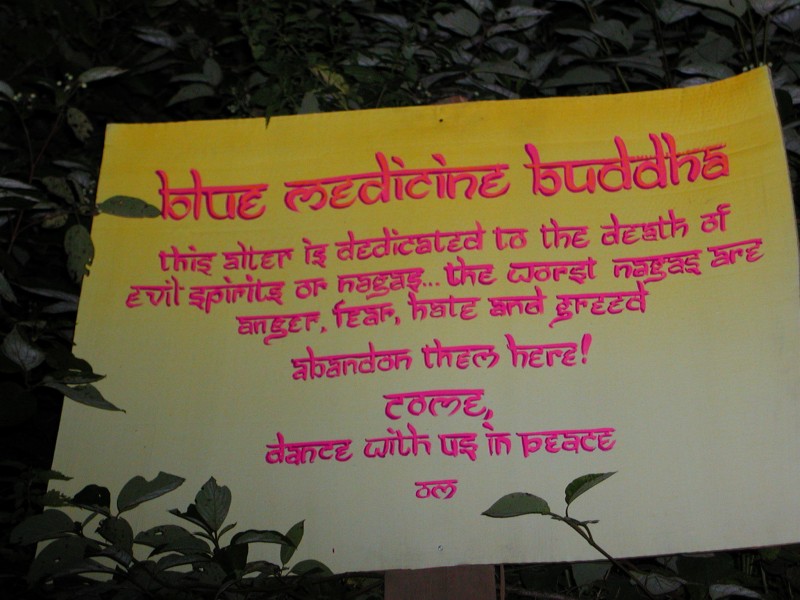 blue medicine buddha
this alter is dedicated to the death of
evil spirits or nagas... the worst nagas are
anger, fear, hate and greed
abandon them here!
come,
dance with us in peace
om